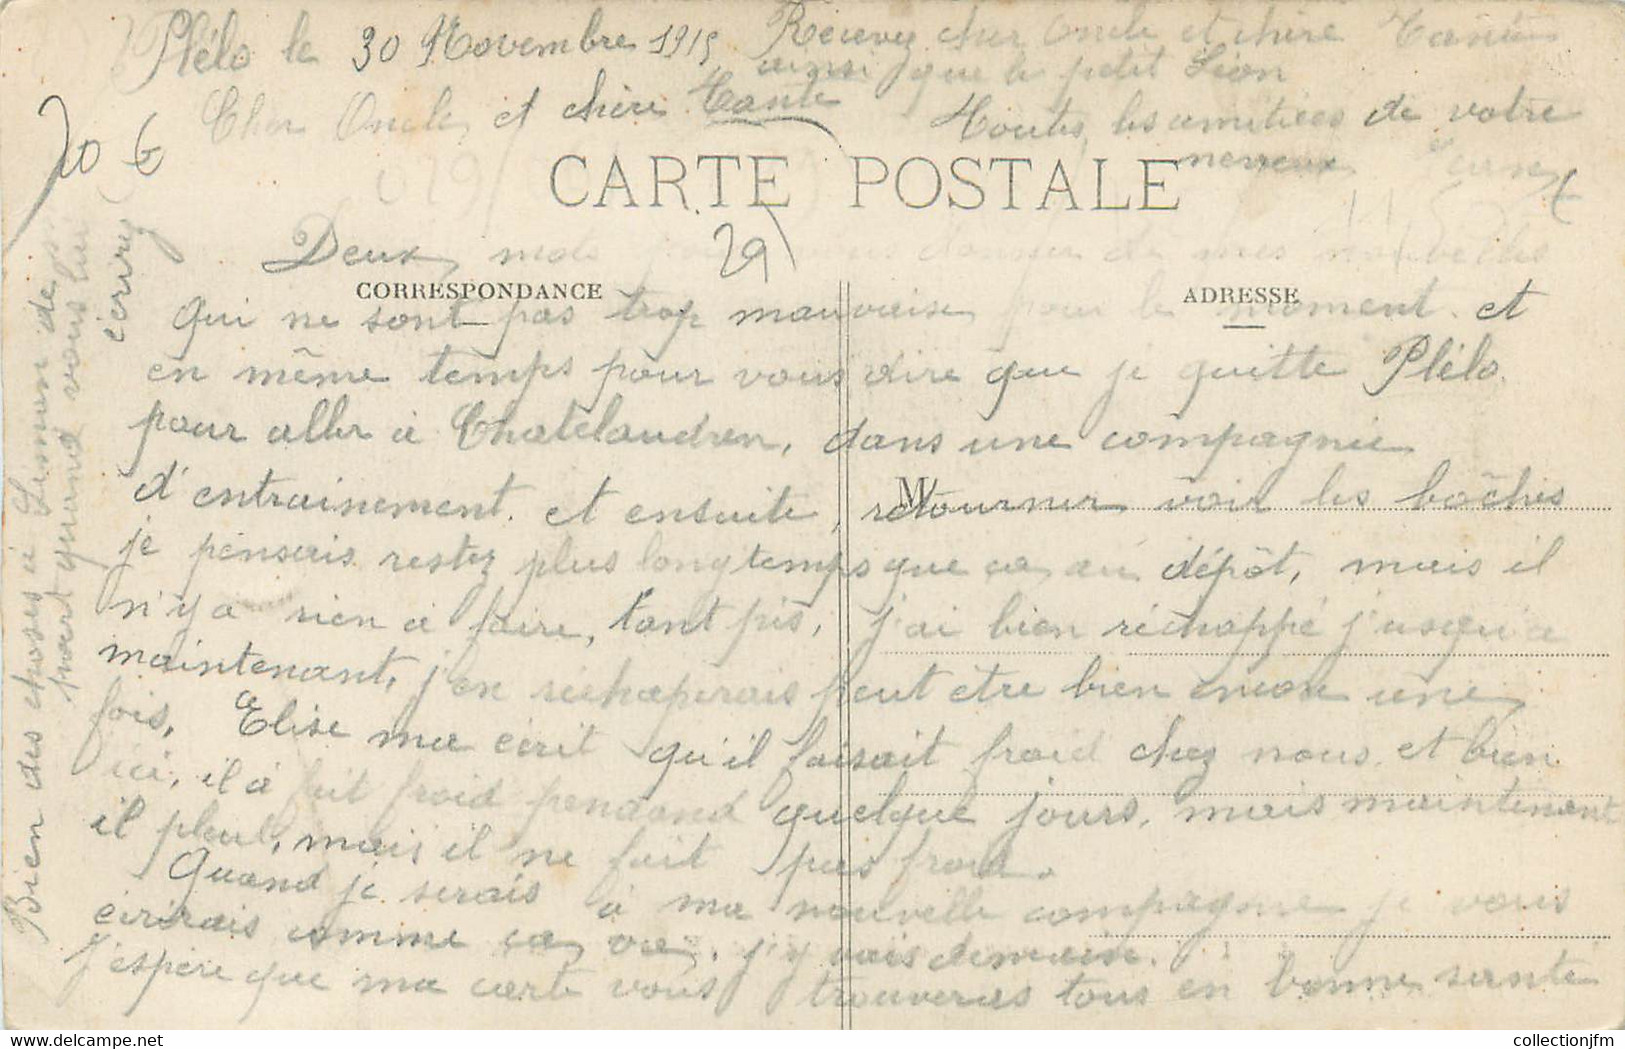 Plélo le 30 Novembre 1915
Cher Oncle et chère Tante
Deux mots pour vous donner de mes nouvelles
qui ne sont pas trop mauvaises pour le moment. et
en même temps pour vous dire que je quitte Plélo.
pour aller à Chatelaudren, dans une compagnie
d'entrainement. et ensuite, retourner voir les bôches
je pensais rester plus longtemps que ça au dépôt, mais il
n'y a rien à faire, tant pis, j'ai bien réchappé jusqu'à
maintenant, j'en réchaperais peut etre bien encore une
fois. Elise ma écrit qu'il faisait froid chez nous et bien
ici, il à fait froid pendand quelque jours, mais maintenant
il pleut, mais il ne fait pas froid.
Quand je serais à ma nouvelle compagnie je vous
écrirais comme ça va. j'y vais demain.
j'espère que ma carte vous trouveras tous en bonne santé
Recevez cher Oncle et chère Tante
ainsi que le petit Léon
Toutes les amitiées de votre
neveux
Bien des choses à Simon de ma
part quand vous lui
écrirez
CARTE POSTALE
CORRESPONDANCE
ADRESSE
M
20 €
29
collectionjfm